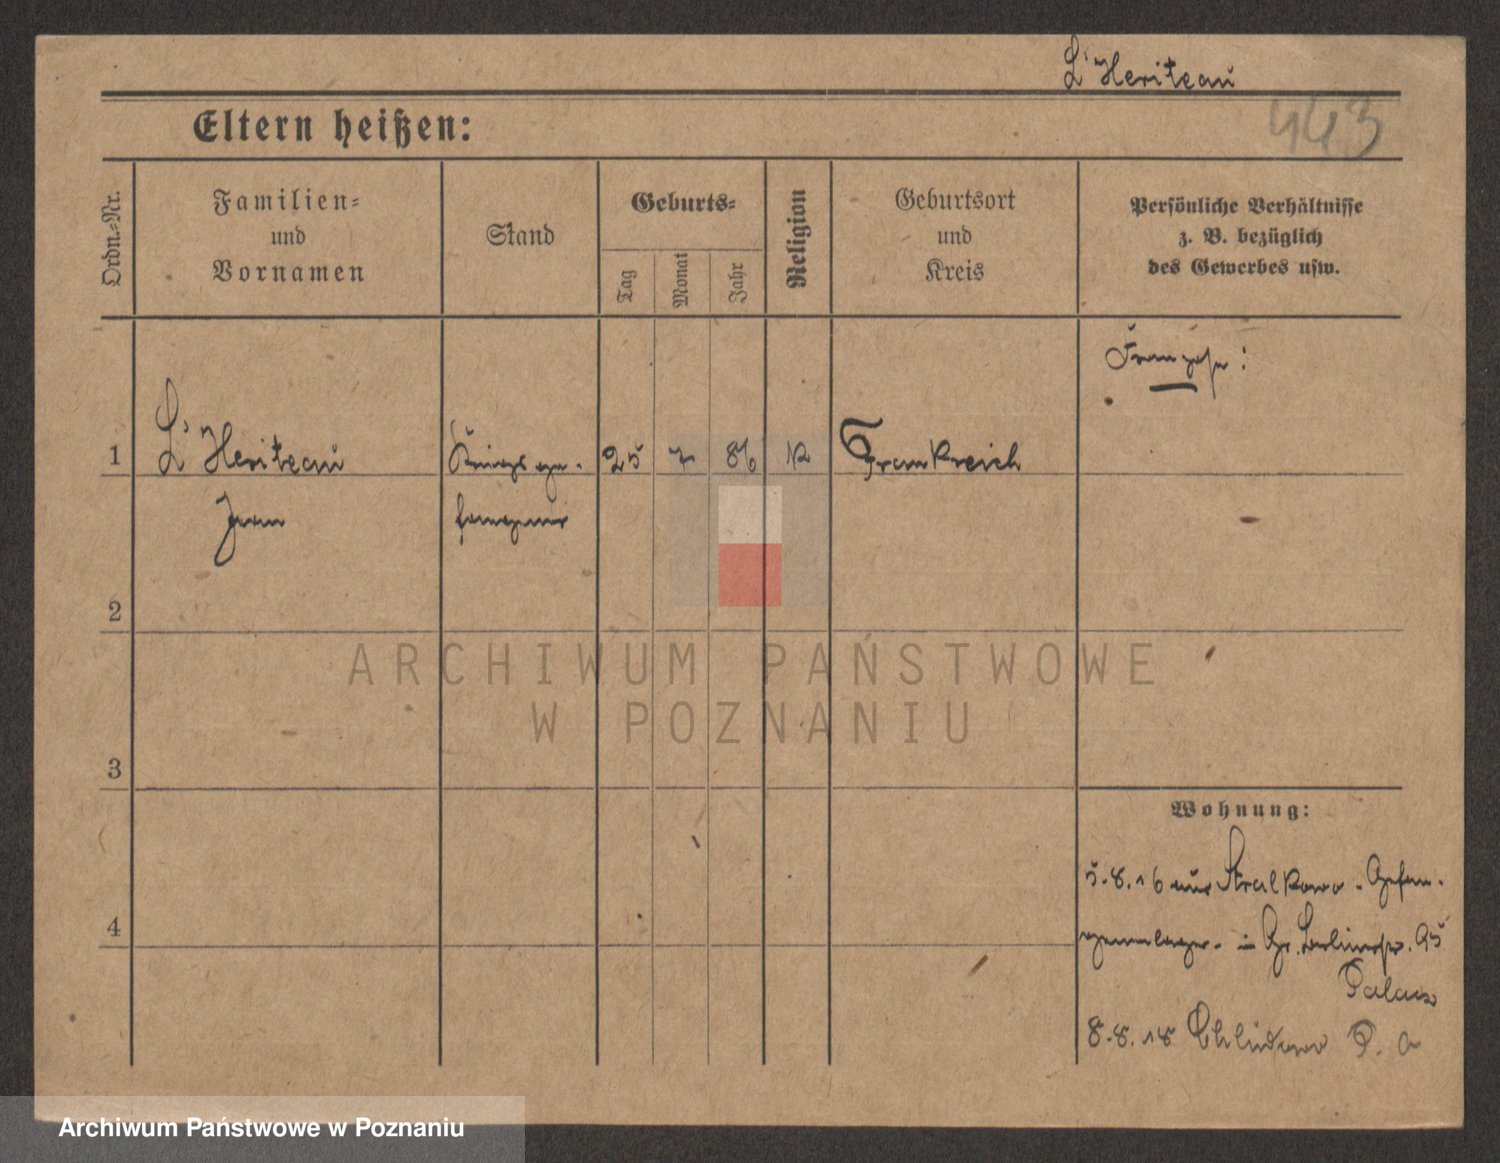 L'Heriteau
443
Eltern heißen:
Ordn.=Nr.
Familien=
und
Vornamen
Stand
Geburts=
Tag
Monat
Jahr
Religion
Geburtsort
und
Kreis
Persönliche Verhältnisse
z. B. bezüglich
des Gewerbes usw.
Franzose!
1
L'Heriteau
Kriegsge-
25
7
86
K
Frankreich
Jean
fangener
2
ARCHIWUM PAŃSTWOWE
W POZNANIU
3
Wohnung:
5.8.16 aus Stralkowo - Gefan-
4
genenlager - in Gr. Berlinerstr. 95
8.8.18
Archiwum Państwowe w Poznaniu